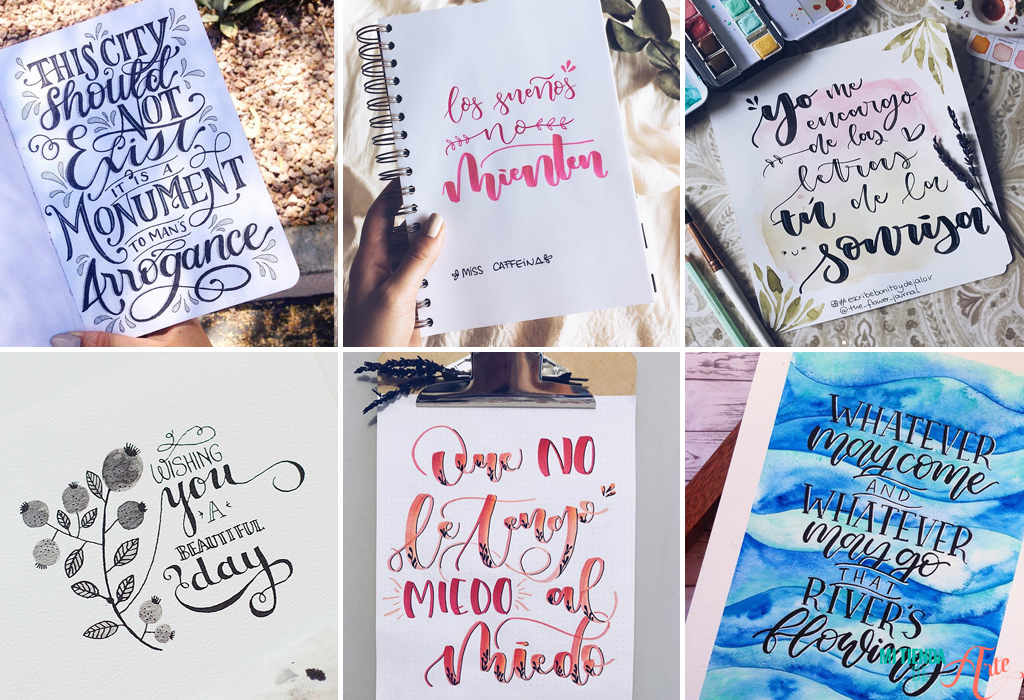 THIS CITY
should
NOT
Exist
IT IS A
MONUMENT
TO MAN'S
Arrogance
los sueños
no
mienten
MISS CAFFEINA
Yo me
encargo
de las
letras
tú de la
sonrisa
#escribebonitoydejaloir
@the_flower_journal
WISHING
you
A
BEAUTIFUL
day
Que NO
le tengo
MIEDO al
miedo
WHATEVER
may come
AND
WHATEVER
may go
THAT
RIVER'S
flowing
MI TIENDA
DE
Arte